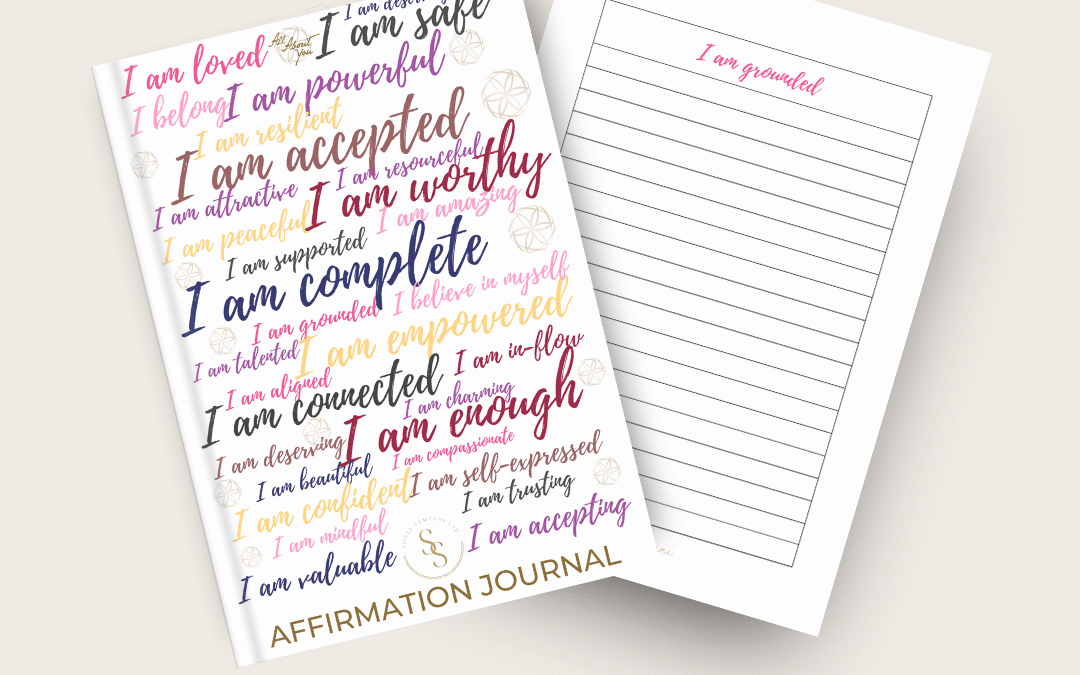 I am deserving
I am safe
All About You
I am loved
I belong
I am powerful
I am resilient
I am accepted
I am resourceful
I am attractive
I am worthy
I am amazing
I am peaceful
I am supported
I am complete
I believe in myself
I am grounded
I am empowered
I am talented
I am in-flow
I am aligned
I am connected
I am charming
I am enough
I am deserving
I am compassionate
I am beautiful
I am self-expressed
I am confident
I am trusting
I am mindful
I am accepting
I am valuable
SS
AFFIRMATION JOURNAL
I am grounded